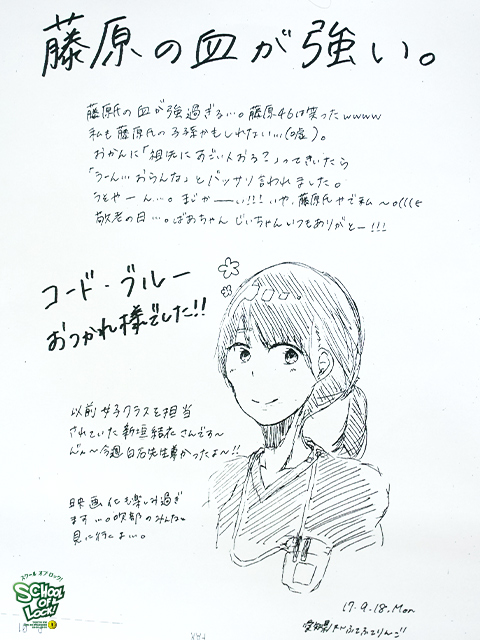 藤原の血が強い。
藤原氏の血が強過ぎる…。藤原46は笑ったwwww
私も藤原氏の子孫かもしれない…(嘘)。
おかんに「祖先にすごい人おる?」ってきいたら
「うーん…おらんな」とバッサリ言われました。
うそやーん…。まじかーい!!!いや、藤原氏やで私〜
敬老の日…。ばあちゃんじいちゃんいつもありがとー!!!
コード・ブルー
おつかれ様でした!!
以前女子クラスを担当
されていた新垣結衣さんです〜
今週白石先生尊かったよ〜!!
映画化も楽しみ過ぎ
ます…。吹部のみんなと
見に行こ…。
スクール オブ ロック!
SCHOOL OF LOCK!
17.9.18.Mon
愛知県